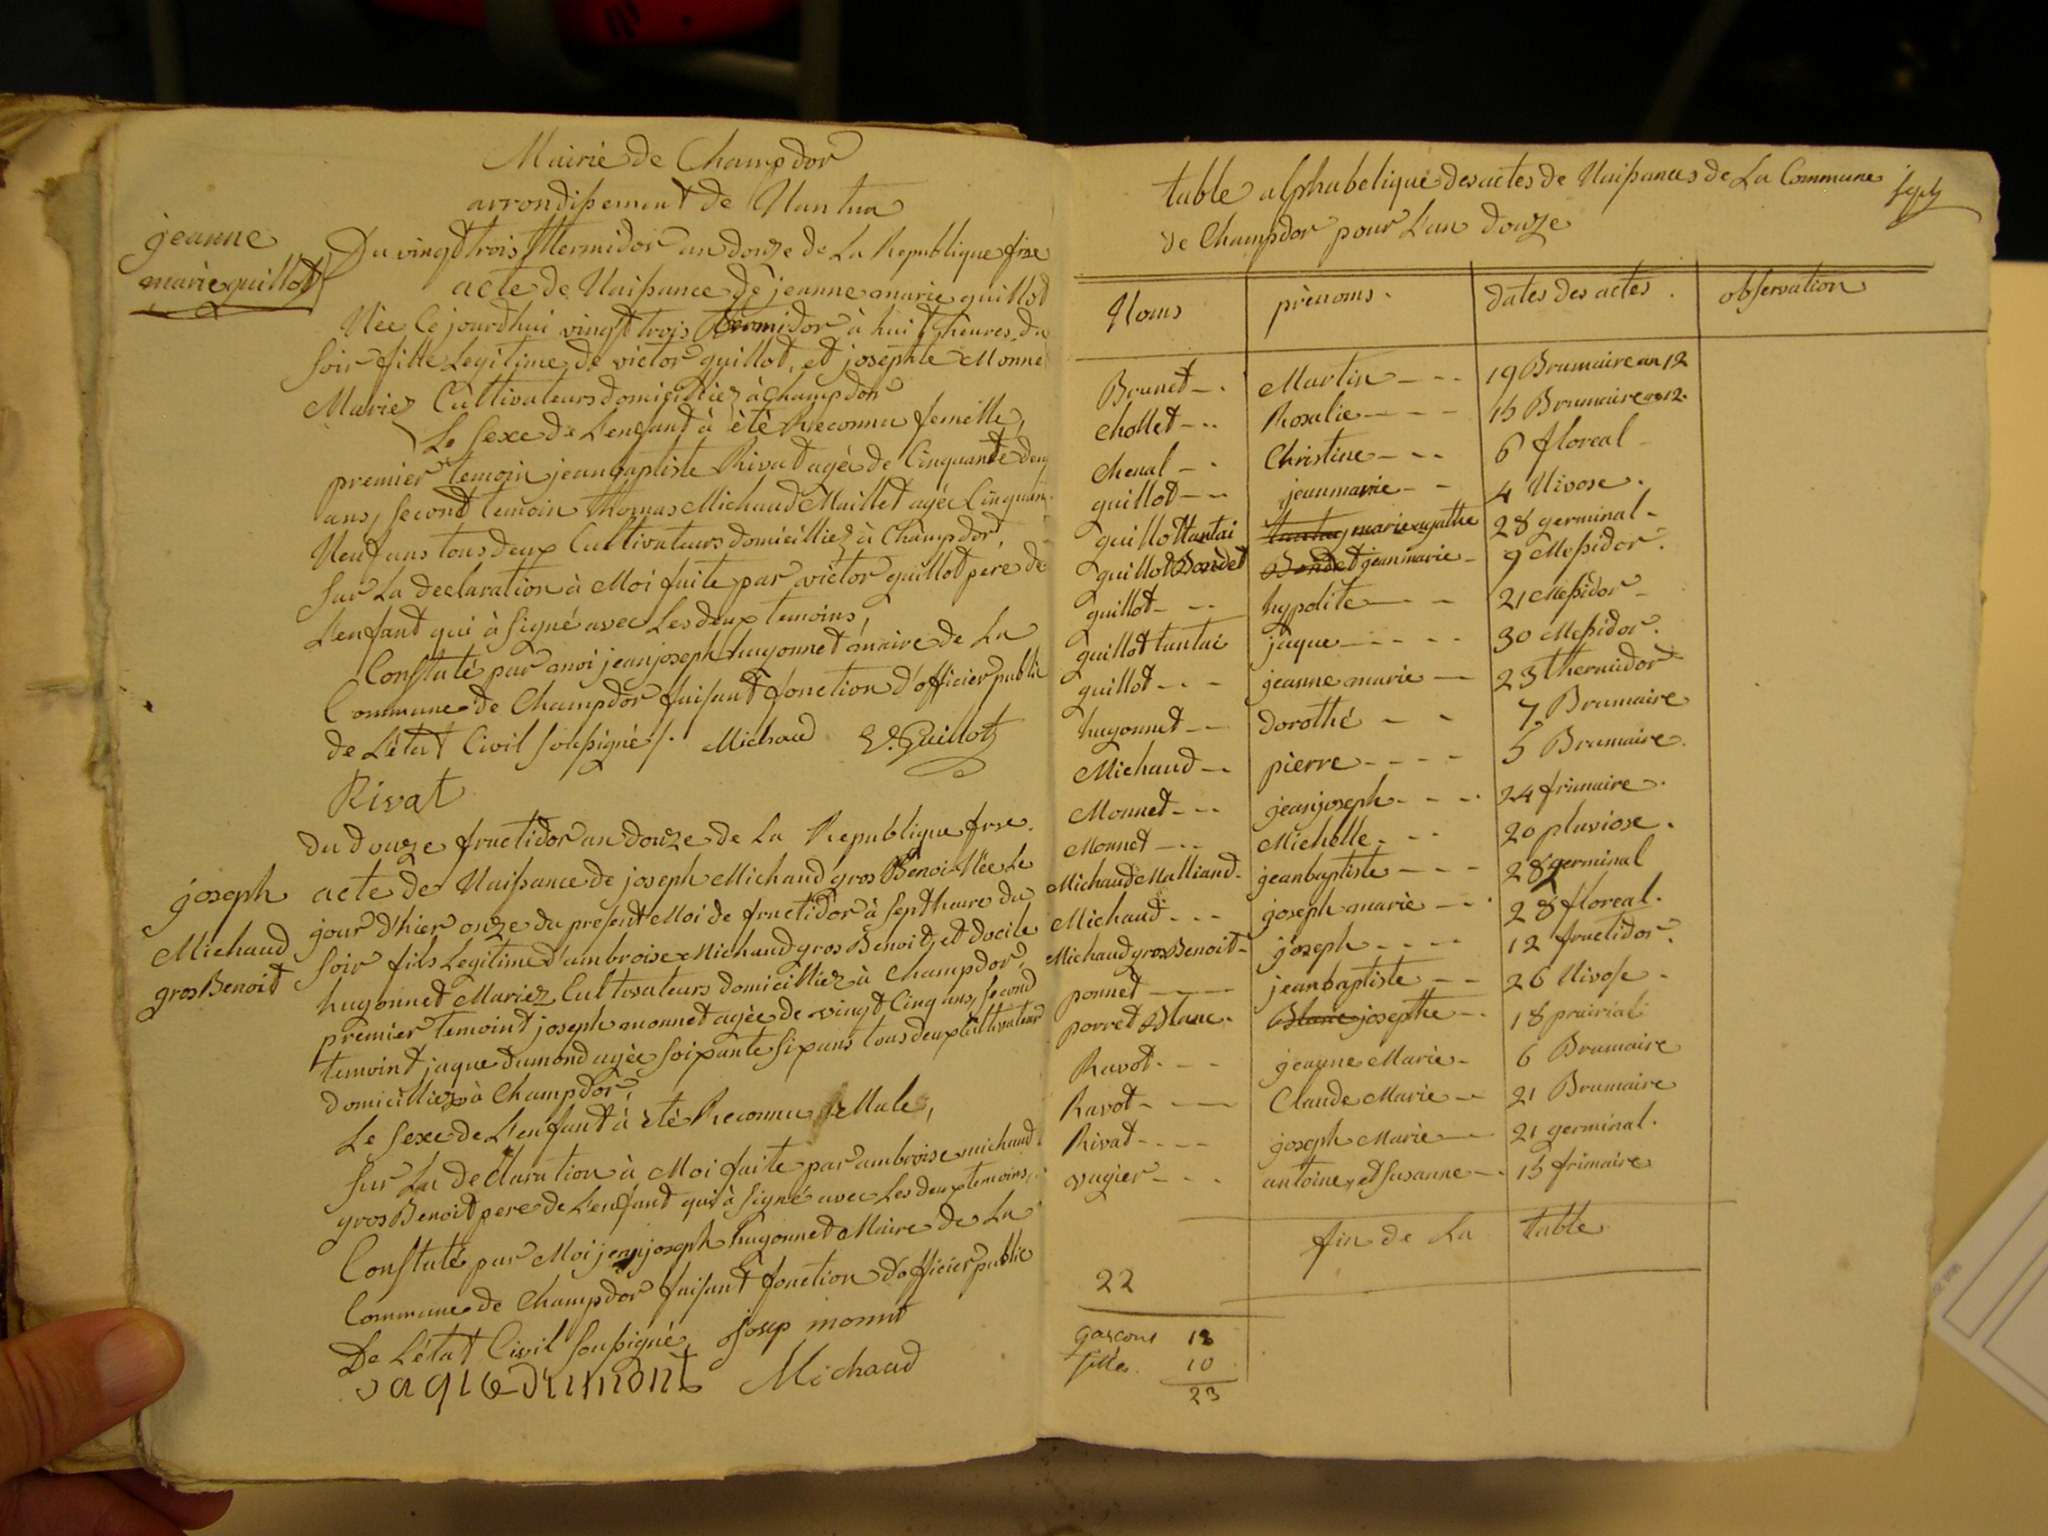 Mairie de Champdor
arrondissement de Nantua
jeanne
marie guillot
Du vingt trois thermidor an douze de La Republique frse
acte de Naissance de jeanne marie guillot
Née Cejourdhui vingt trois thermidor à huit heures du
soir fille Legitime de victor guillot, et josephte Monne
Mariez Cultivateurs domicilliez à Champdor
Le sexe de L'enfant à été Reconnu femelle,
premier temoin jeanbaptiste Rivat agée de Cinquante deux
ans, second temoin thomas Michaud Maillet agée Cinquan
Neuf ans tous deux Cultivateurs domicilliez à Champdor,
sur La declaration à Moi faite par victor guillot pere de
L'enfant qui à signé avec Les deux temoins,
Constaté par moi jeanjoseph hugonnet maire de La
Commune de Champdor faisant fonction d'officier public
de L'état Civil soussigné. Michaud V. Guillot
Rivat
du douze fructidor an douze de La Republique frse.
joseph
Michaud
gros Benoit
acte de Naissance de joseph Michaud gros Benoi Née Le
jour d'hier onze du present Moi de fructidor à sept heure du
soir fils Legitime d'ambroise Michaud gros Benoit, et docile
hugonnet Mariez Cultivateurs domicilliez à Champdor,
premier temoint joseph monnet agée de vingt Cinq ans, second
temoint jaque dumond agée soixante six ans tous deux Cultivateur
domicilliez à Champdor,
Le sexe de L'enfant à été Reconnu Male,
sur La declaration à Moi faite par ambroise michaud
gros Benoit pere de L'enfant qui à signé avec Les deux temoins,
Constaté par Moi jeanjoseph hugonnet Maire de La
Commune de Champdor faisant fonction d'officier public
De L'état Civil soussigné, josep monnt
jaque dumont Michaud
table alphabetique des actes de Naissances de La Commune
de Champdor pour L'an douze
sept
Noms prénoms. dates des actes. observation
Brunet Martin 19 Brumaire an 12
Chollet Rosalie 15 Brumaire an 12.
Chenal Christine 6 floreal
guillot jeanmarie 4 Nivose.
guillot tantai tantay marie agathe 28 germinal
guillot Bondet Bondet jeanmarie 9 Messidor.
guillot hypolite 21 Messidor
guillot tantai jaque 30 Messidor.
guillot jeanne marie 23 thermidor
hugonnet dorothé 7 Brumaire
Michaud pierre 5 Brumaire.
Monnet jeanjoseph 24 frimaire.
Monnet Michelle 20 pluviose.
Michaud Malliand jeanbaptiste 28 germinal
Michaud joseph marie 28 floreal.
Michaud gros Benoit joseph 12 fructidor.
ponnet jeanbaptiste 26 Nivose
porret Blanc. Blanc josephte 18 prairial
Ravot jeanne Marie 6 Brumaire
Ravot Claude Marie 21 Brumaire
Rivat joseph Marie 21 germinal.
vugier antoine, et Susanne 15 frimaire
fin de La table
22
garcons 13
filles. 10
23